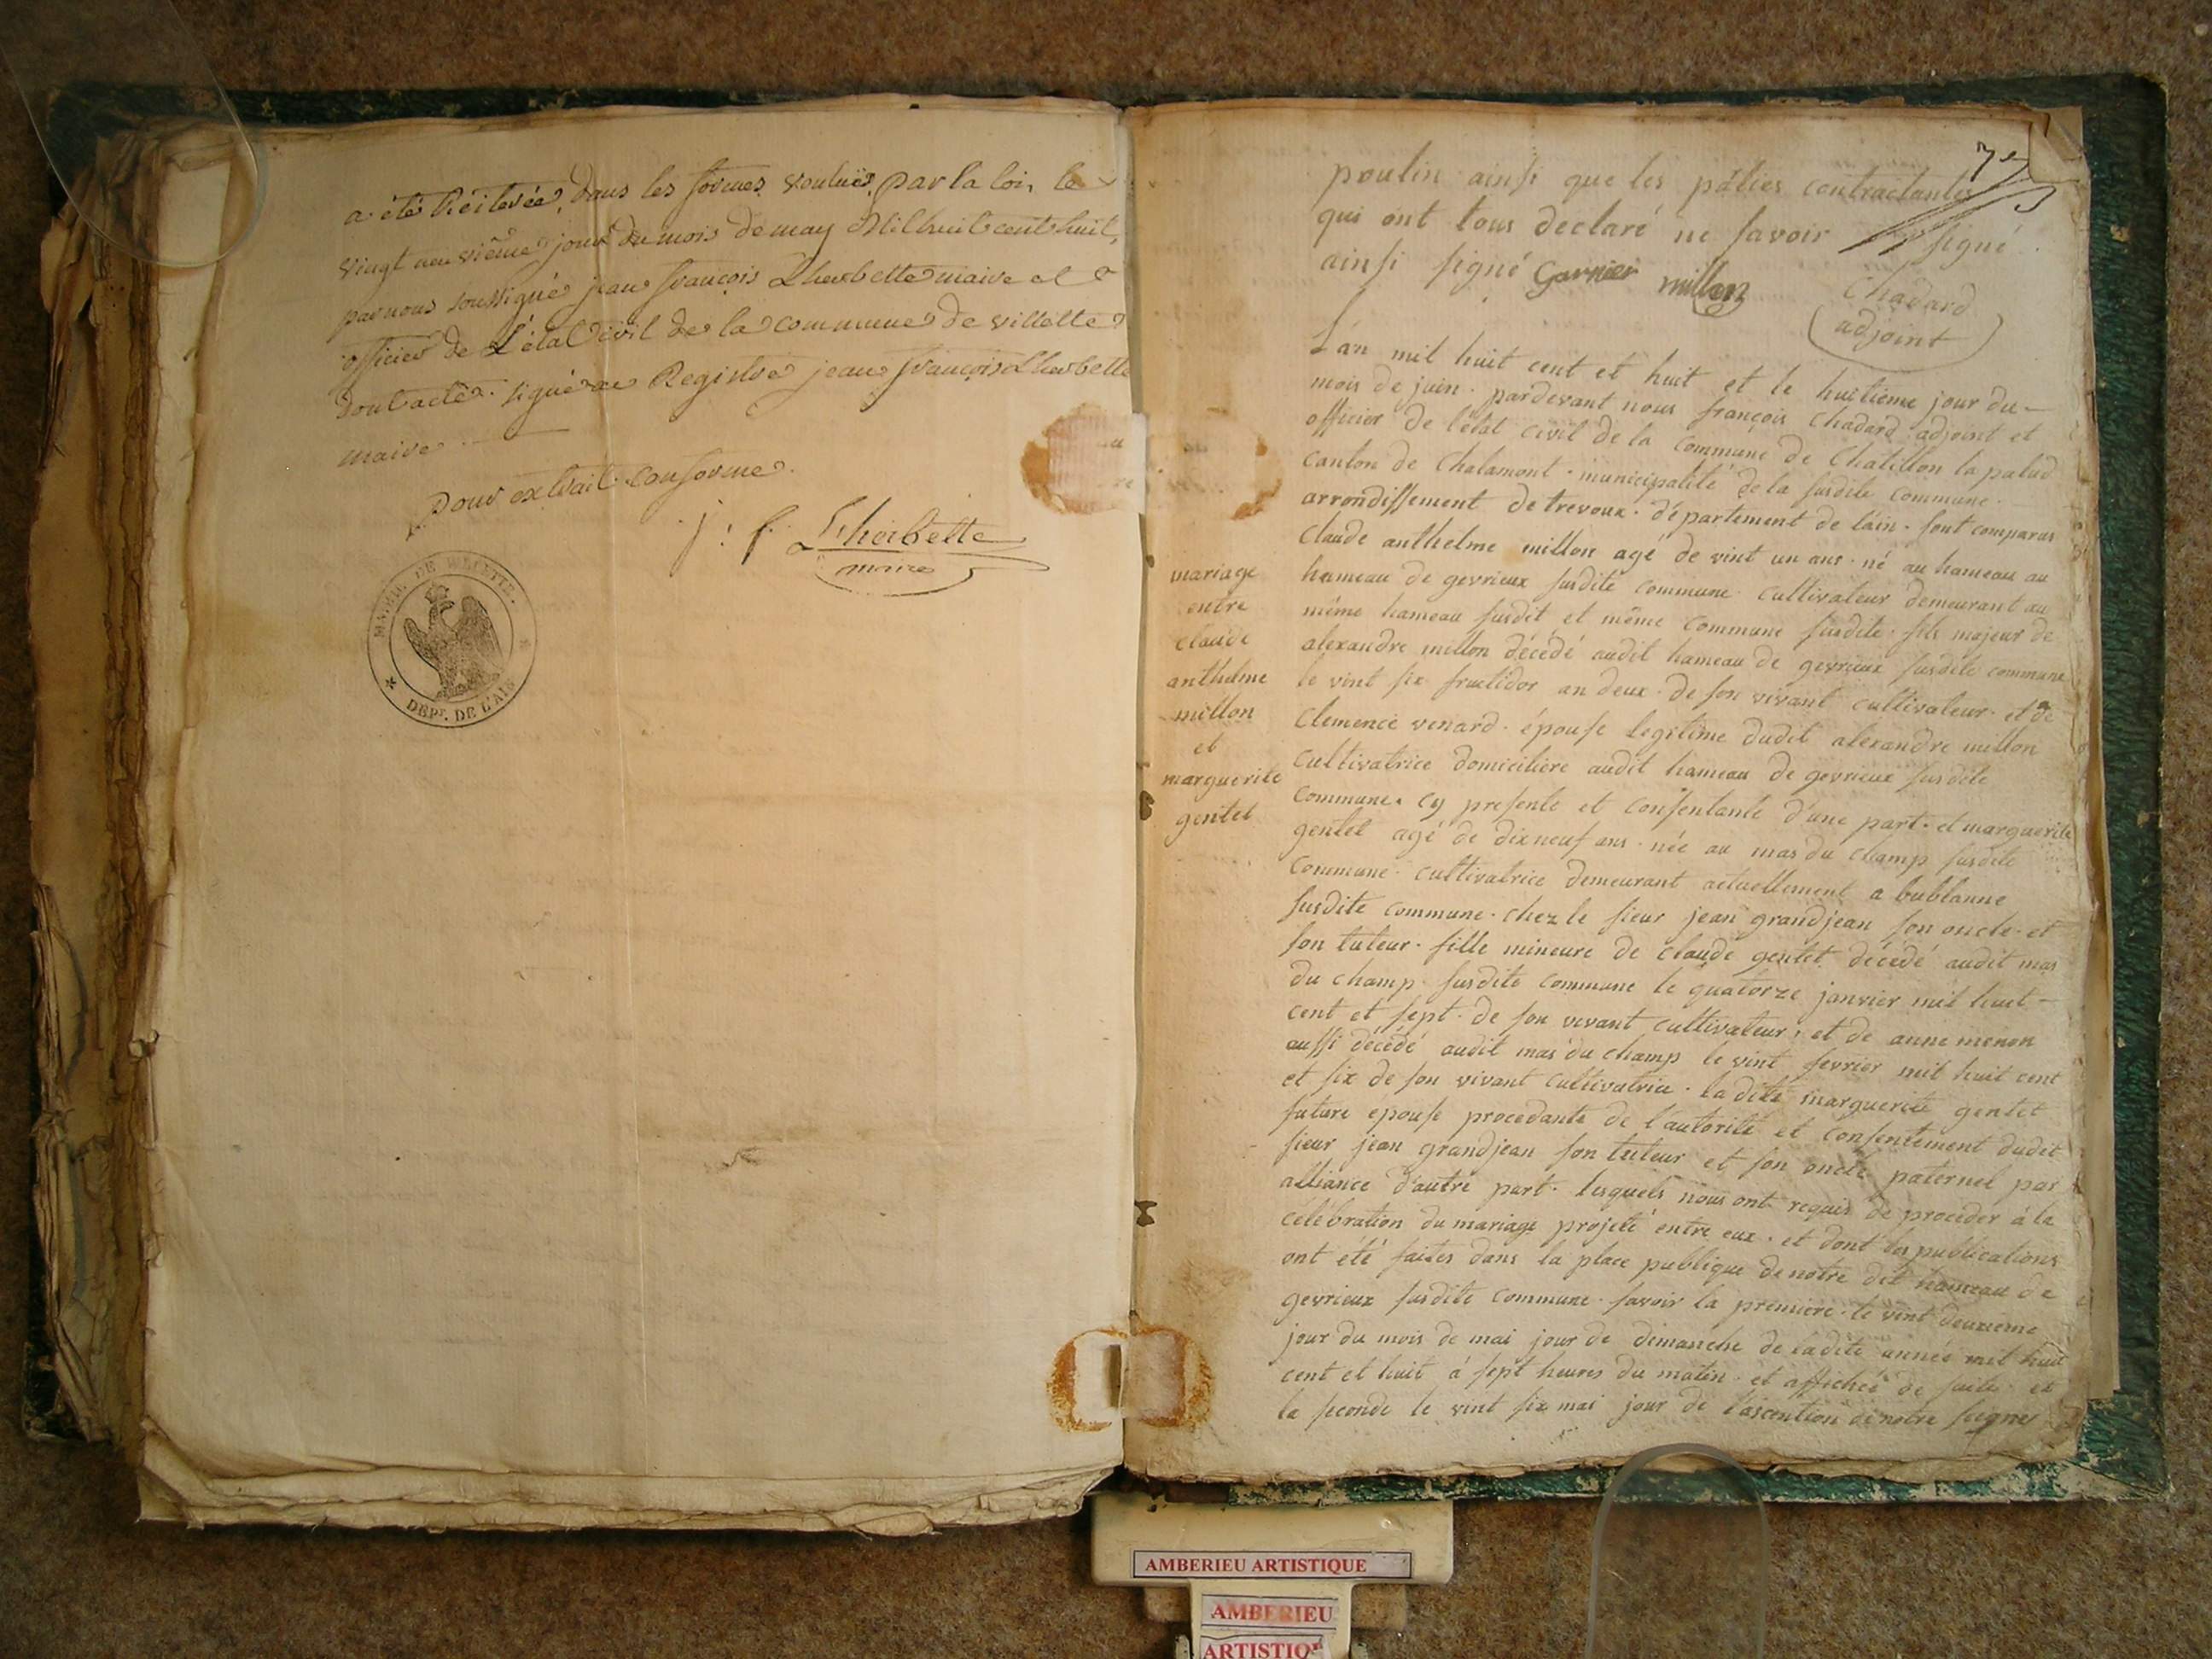 a été Réiterée, dans les formes voulues par la loi, le
vingt neuvième jour du mois de may Mil huit cent huit,
par nous soussigné jean françois Lherbette maire et
officier de L'état civil de la commune de villette
dont acte. signé au Registre jean françois Lherbette
maire
pour extrait conforme.
j: f. Lherbette
maire
MAIRIE DE VILLETTE.
DEPT. DE L'AIN
poulin ainsi que les paties contractantes
qui ont tous declaré ne savoir signé.
ainsi signé Garnier millon
Chadard
adjoint
L'an mil huit cent et huit et le huitieme jour du
mois de juin. pardevant nous françois Chadard adjoint et
officier de l'état civil de la commune de Chatillon la palud
canton de Chalamont. municipalité de la susdite commune.
arrondissement de trevoux. département de l'ain. sont comparus
Claude anthelme millon agé de vint un ans. né au hameau au
hameau de gevrieux susdite commune. cultivateur demeurant au
même hameau susdit et même commune susdite. fils majeur de
alexandre millon décédé audit hameau de gevrieux susdite commune
le vint six fructidor an deux. de son vivant cultivateur. et de
Clemence venard. épouse legitime dudit alexandre millon
cultivatrice domiciliere audit hameau de gevrieux susdite
commune. cy presente et consentante d'une part. et marguerite
gentet agé de dixneuf ans. née au mas du champ susdite
commune. cultivatrice demeurant actuellement a bublanne
susdite commune. chez le sieur jean grandjean son oncle. et
son tuteur. fille mineure de claude gentet décédé audit mas
du champ susdite commune le quatorze janvier mil huit
cent et sept. de son vivant cultivateur; et de anne menon
aussi décédé audit mas du champ le vint fevrier mil huit cent
et six de son vivant cultivatrice. la dite marguerite gentet
future épouse procedante de l'autorité et consentement dudit
sieur jean grandjean son tuteur et son oncle paternel par
alliance d'autre part. lesquels nous ont requis de proceder à la
célébration du mariage projeté entre eux. et dont les publications
ont été faites dans la place publique de notre dit hameau de
gevrieux susdite commune. savoir la premiere. le vint deuxieme
jour du mois de mai jour de dimanche de ladite année mil huit
cent et huit à sept heures du matin. et affichée de suite. et
la seconde le vint six mai jour de l'ascention de notre signer
mariage
entre
claude
anthelme
millon
et
marguerite
gentet
AMBERIEU ARTISTIQUE
AMBERIEU
ARTISTIQ